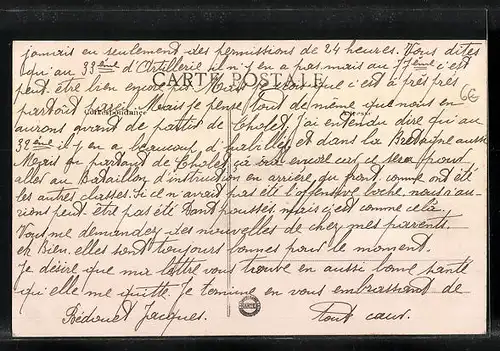 jamais eu seulement des permissions de 24 heures. Vous dites
qu'au 33ème d'Artillerie il n'y en a pas mais au 77ème c'est
peut-être bien encore pis. Mais je crois que c'est à près près
CARTE POSTALE
partout pareil. Mais je pense tout de même que nous en
Correspondance
Adresse
aurons avant de partir de Cholet. J'ai entendu dire qu'au
32ème il y en a beaucoup d' et dans la Bretagne aussi
Mais en partant de Cholet ça ira encore car ce sera pour
aller au Bataillon d'instruction en arrière du front, comme ont été
les autres classes. Si ce n'avait pas été l'offensive boche, nous n'au-
rions peut-être pas été tant poussés, mais c'est comme celà.
Vous me demandez des nouvelles de cher mes parents.
eh Bien, elles sont toujours bonnes pour le moment.
Je désire que ma lettre vous trouve en aussi bonne santé
qu'elle me quitte. Je termine en vous embrassant de
Bédouet Jacques. tout cœur.